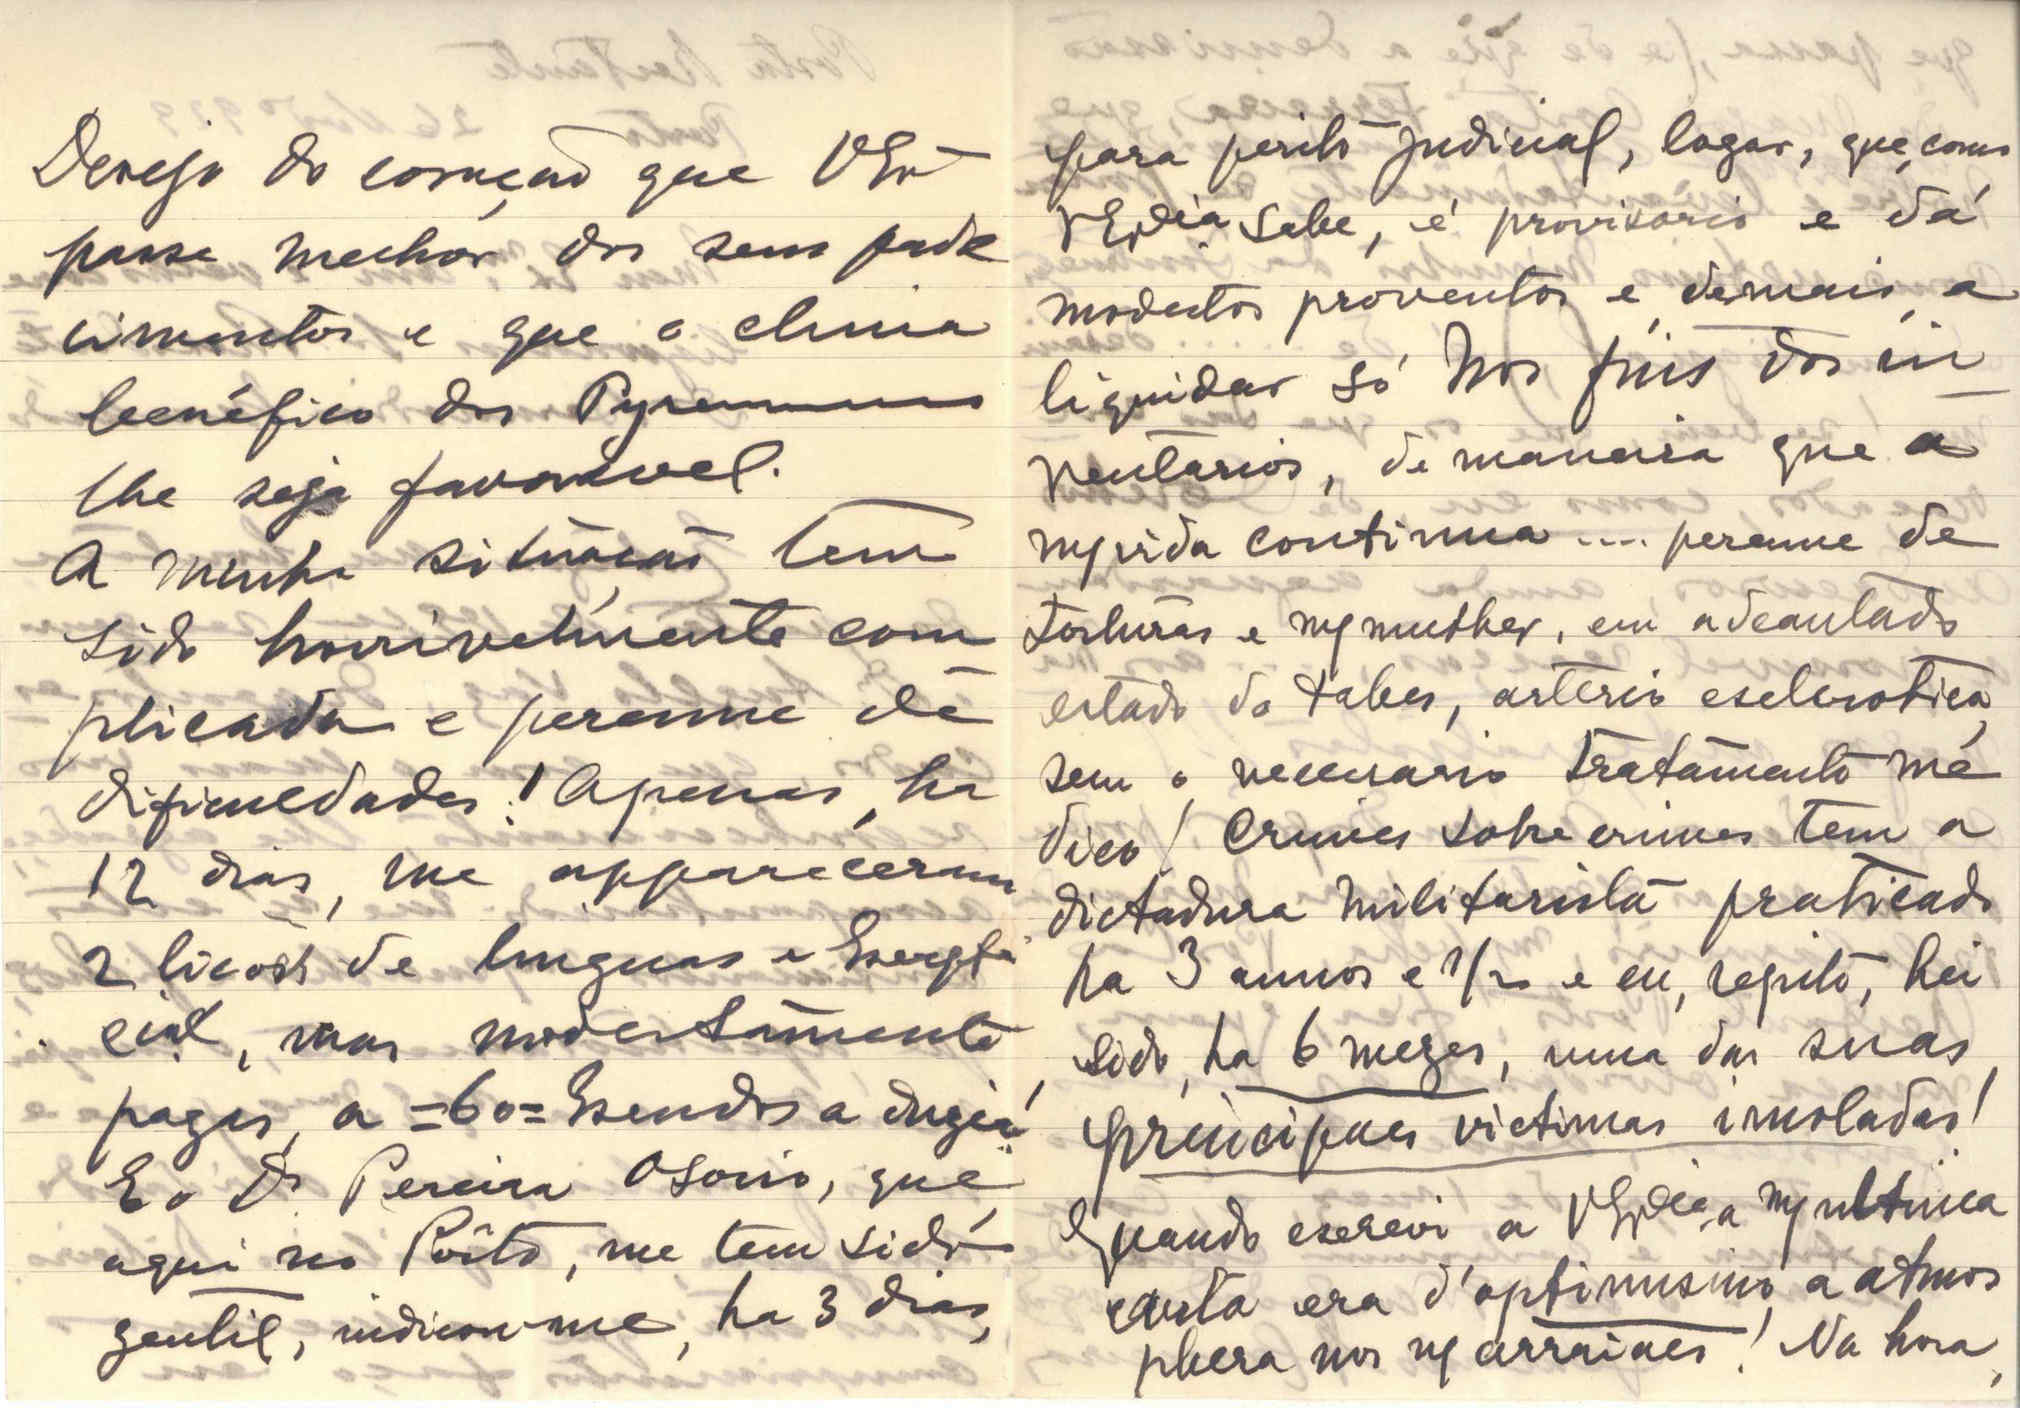 Desejo do coração que VExª
passe melhor dos seus pade
cimentos e que o clima
benéfico dos Pyreneus
lhe seja favoravel.
A minha situação tem
sido horrivelmente com
plicada e perenne de
dificuldades! Apenas, ha
12 dias, me appareceram
2 licões de linguas e
cial, mas modestamente
pagas, a =60= Escudos a
E o Dr Pereira Osorio, que,
aqui no Pôrto, me tem sido
gentil, indicou-me, ha 3 dias,
para perito judicial, logar, que, como
VExcia sabe, é provisorio e dá
modestos proventos e, demais, a
liquidar só nos fins dos in
ventarios, de maneira que a
mª vida continua .... perenne de
torturas e mª mulher, em adeantado
estado de tabes, arterio esclerotica,
sem o necessario tratamento mé
dico! Crimes sobre crimes tem a
dictadura militarista praticado
ha 3 annos e 1/2 e eu, repito, hei
sido, ha 6 mezes, uma das suas
principaes victimas imoladas!
Quando escrevi a VExcia a mª ultima
carta era d'optimismo a atmos
phera nos ns arraiaes! Na hora,